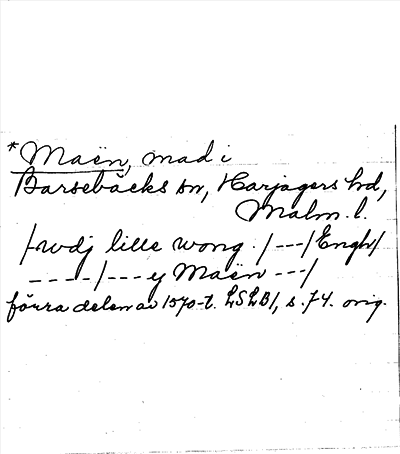 *Maën, mad i
Barsebäcks sn, Harjagers hd,
Malm. l.
/wdj lille wong. / --- / Engh/
---- / --- y Maën --- /
förra delen av 1570-t. LSLB1, s. 74. orig.